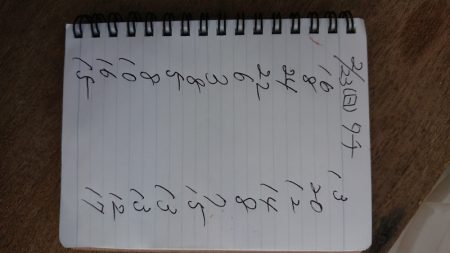 2/23(日)
16 13
18 20
24 12
22 14
6 8
3 7
15
15 13
8 13
10 12
16 17
15